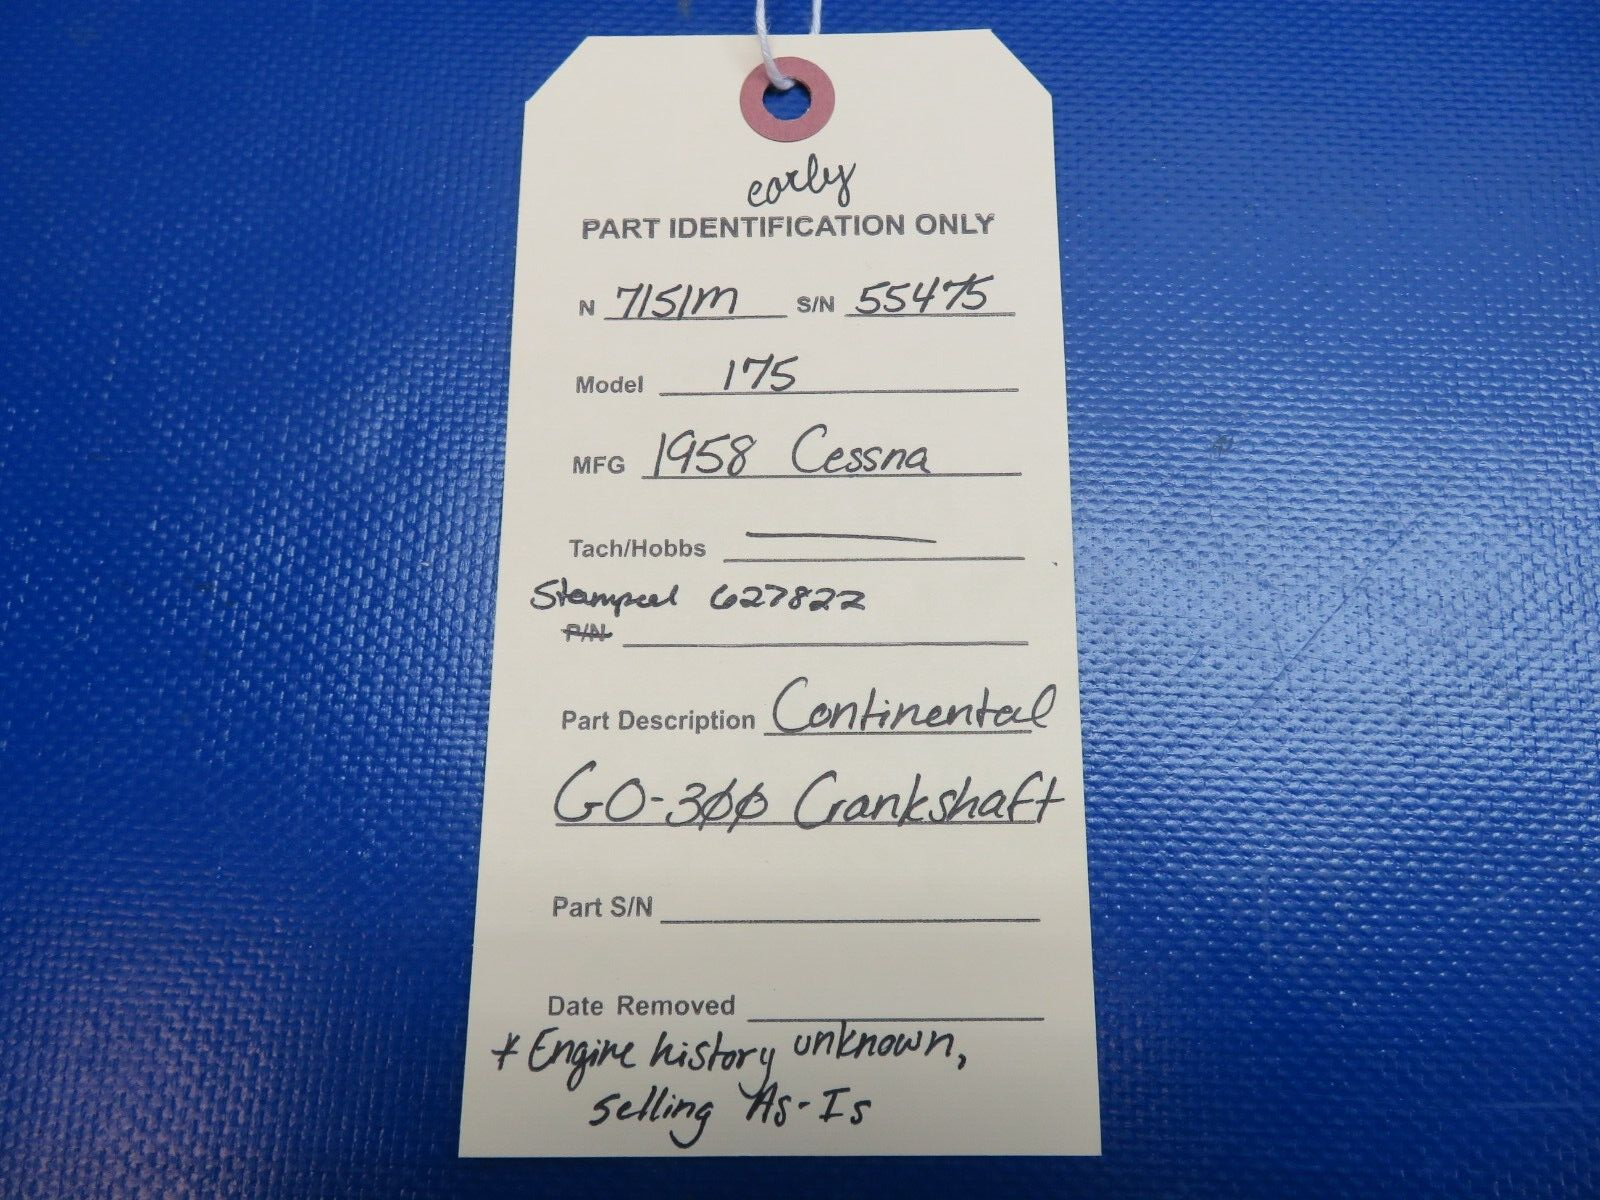 early
PART IDENTIFICATION ONLY
N 7151M S/N 55475
Model 175
MFG 1958 Cessna
Tach/Hobbs —
Stamped 627822
P/N
Part Description Continental
GO-300 Crankshaft
Part S/N
Date Removed
* Engine history unknown,
selling As-Is